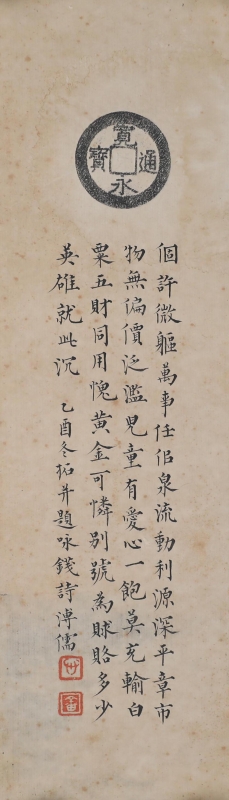 寬永通寶
個許微軀萬事任侶泉流動利源深平章市
物無偏價泛濫兒童有愛心一飽莫充輸白
粟五財同用愧黃金可憐別號為賕賂多少
英雄就此沉 乙酉冬拓并題咏錢詩溥儒